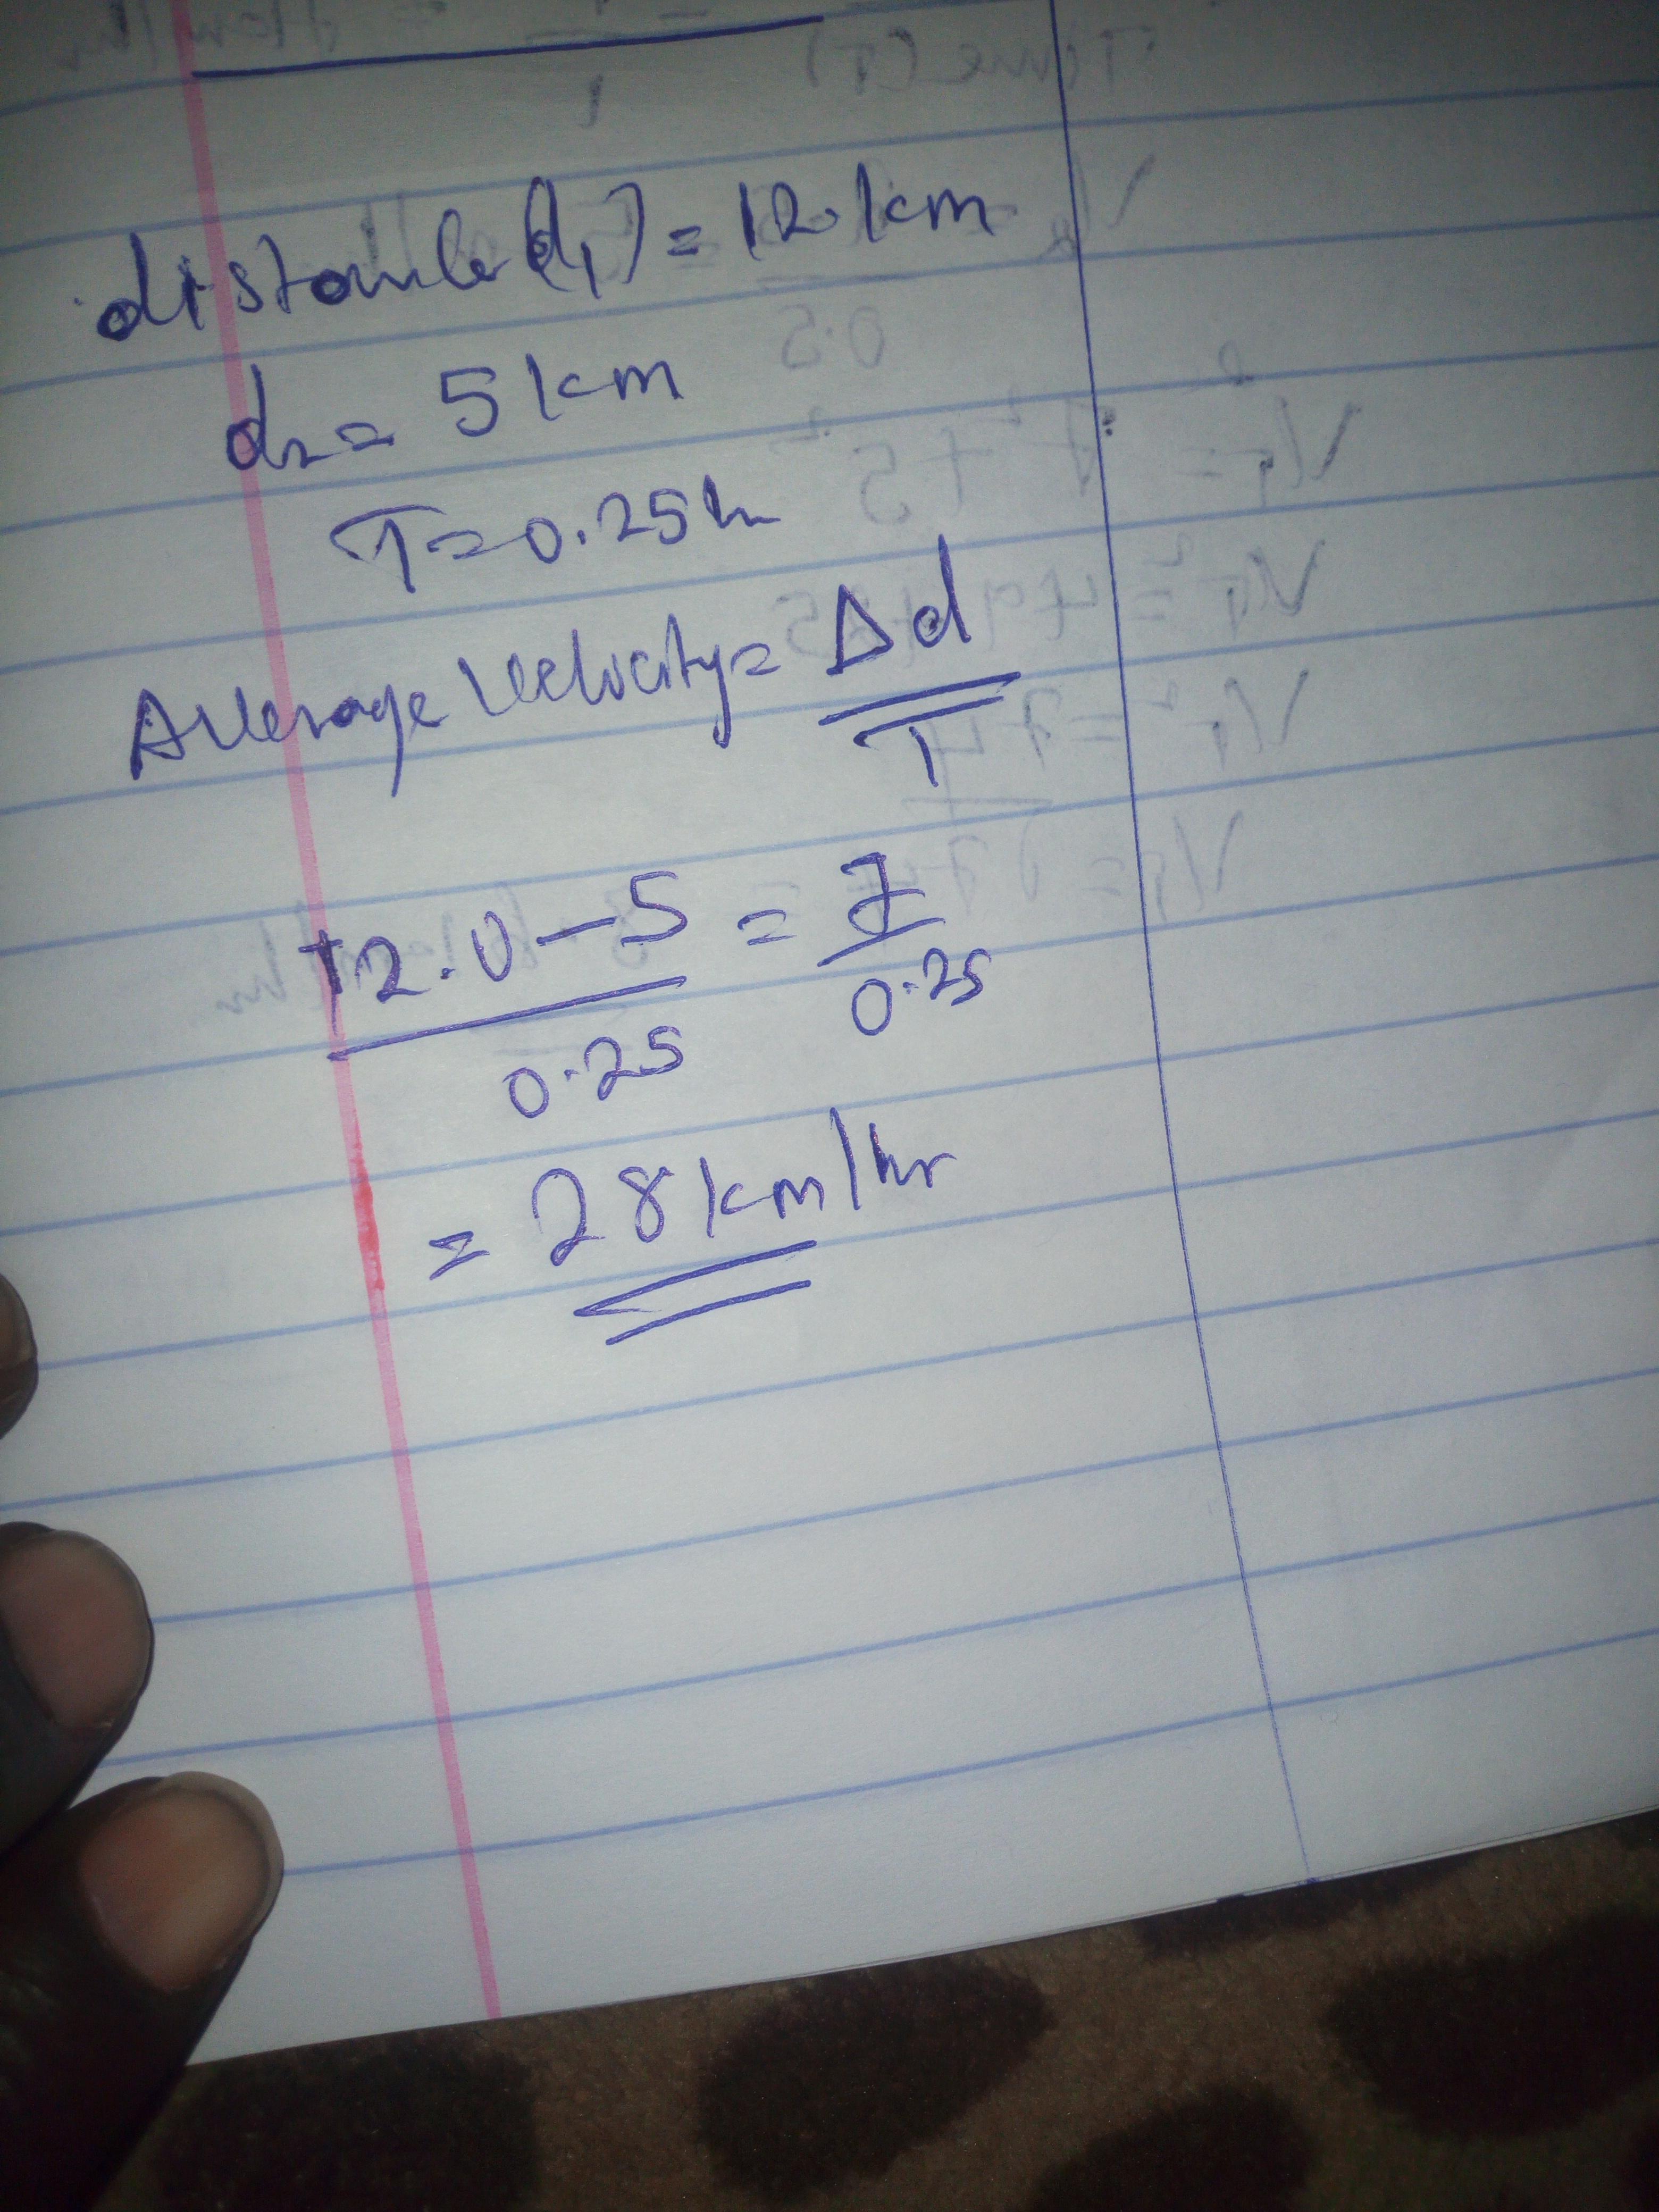 distance (d₁) = 12 km
d₂ = 5 km
T = 0.25h
Average Velocity = Δd / T
12.0 - 5 / 0.25 = 7 / 0.25
= 28 km/hr